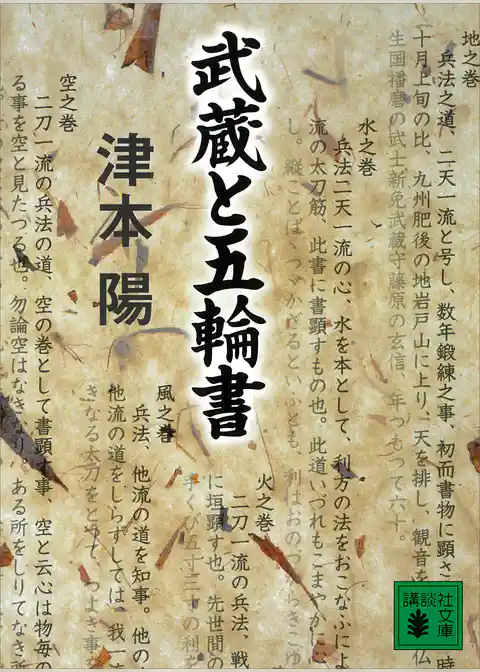 武蔵と五輪書
津本 陽
地之巻
兵法之道、二天一流と号し、数年鍛練之事、初而書物に顕さ
十月上旬の比、九州肥後の地岩戸山に上り、天を拝し、観音を
生国播磨の武士新免武蔵守藤原の玄信、年つもつて六十。
時
仏
水之巻
兵法二天一流の心、水を本として、利方の法をおこなふによ
流の太刀筋、此書に書顕すもの也。此道いづれもこまやかに
し。縦ことばゝつゞかざるといふとも、利はおのづからきこゆ
火之巻
二刀一流の兵法、戦
に垣顕す也。先世間の
手くび五寸三寸の利を
風之巻
兵法、他流の道を知事。他の
他流の道をしらずしては、我一流
きなる太刀をとつて、つよき事を
空之巻
二刀一流の兵法の道、空の巻として書顕す事、空と云心は物毎の
る事を空と見たつる也。勿論空はなきなり。ある所をしりてなき所
講談社
文庫